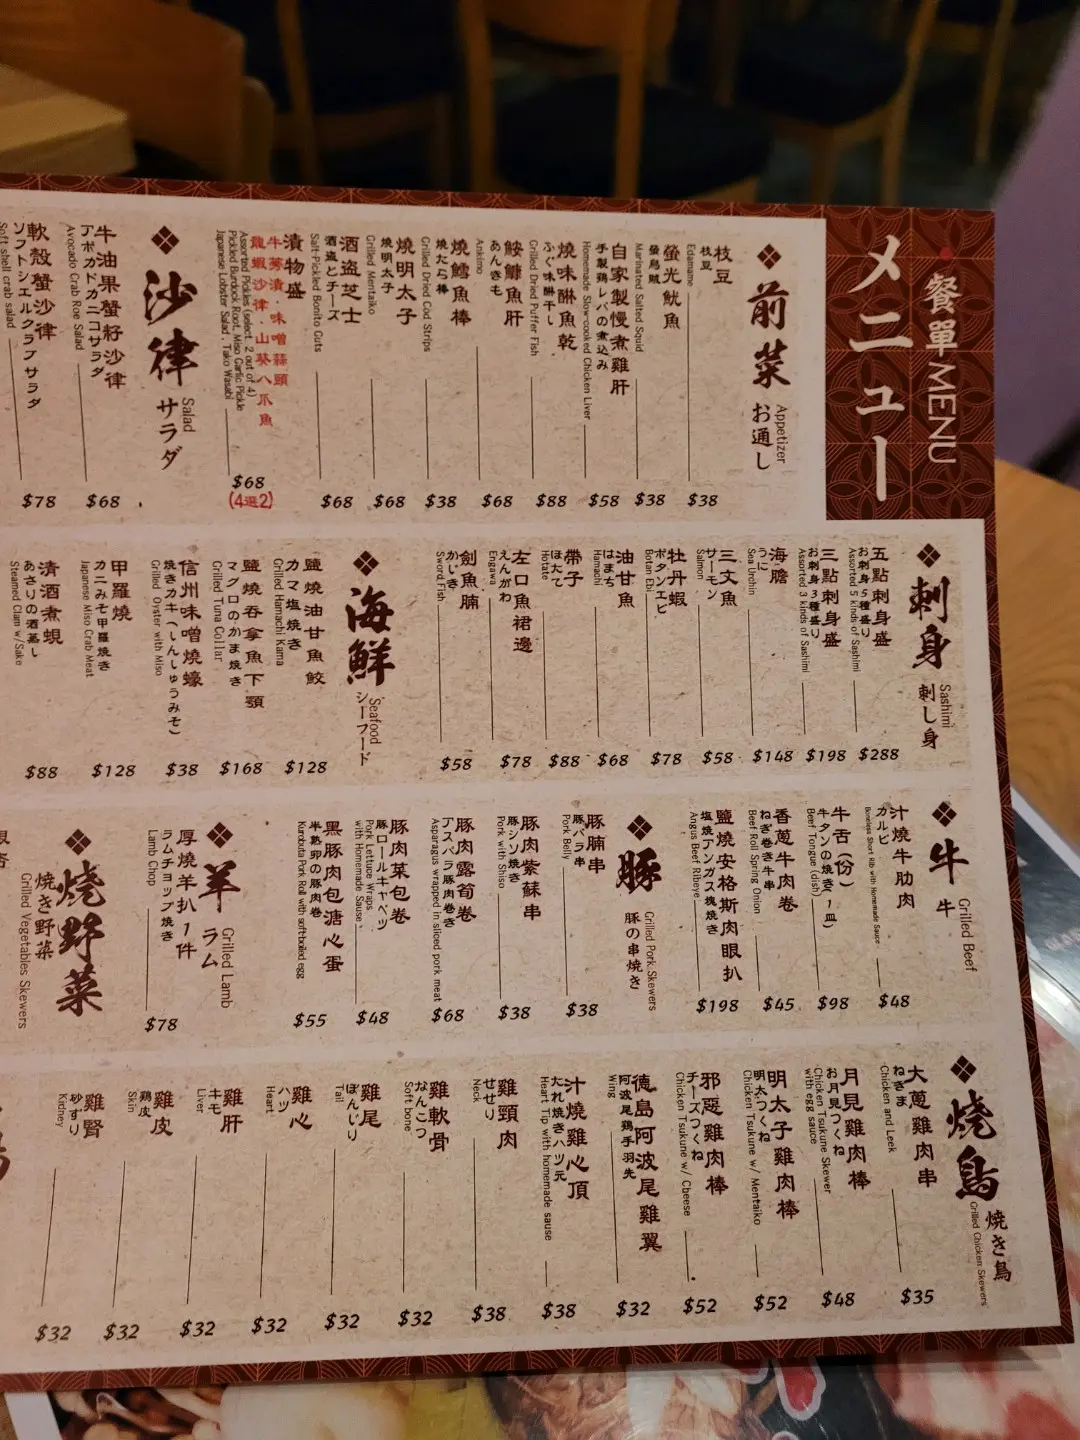 餐單 MENU
メニュー
前菜
Appetizer
お通し
枝豆
枝豆
Edamame
$38
螢光魷魚
螢烏賊
Marinated Salted Squid
$38
自家製慢煮雞肝
手製鶏レバの煮込み
Homemade Slow-cooked Chicken Liver
$58
燒味醂魚乾
ふぐ味醂干し
Grilled Dried Puffer Fish
$88
鮟鱇魚肝
あんきも
Ankimo
$68
燒鱈魚棒
焼たら棒
Grilled Dried Cod Strips
$38
燒明太子
焼明太子
Grilled Mentaiko
$68
酒盜芝士
酒盗とチーズ
Salt-Pickled Bonito Guts
$68
漬物盛
牛蒡漬・味噌蒜頭
龍蝦沙律・山葵八爪魚
Assorted Pickles (select 2 out of 4)
Pickled Burdock Root, Miso Garlic Pickle
Japanese Lobster Salad, Tako Wasabi
$68
(4選2)
沙律
Salad
サラダ
牛油果蟹籽沙律
アボカドカニコサラダ
Avocado Crab Roe Salad
$68
軟殼蟹沙律
ソフトシェルクラブサラダ
Soft shell crab salad
$78
刺身
Sashimi
刺し身
五點刺身盛
お刺身5種盛り
Assorted 5 kinds of Sashimi
$288
三點刺身盛
お刺身3種盛り
Assorted 3 kinds of Sashimi
$198
海膽
うに
Sea Urchin
$148
三文魚
サーモン
Salmon
$58
牡丹蝦
ボタンエビ
Botan Ebi
$78
油甘魚
はまち
Hamachi
$68
帶子
ほたて
Hotate
$88
左口魚裙邊
えんがわ
Engawa
$78
劍魚腩
かじき
Sword Fish
$58
海鮮
Seafood
シーフード
鹽燒油甘魚鮫
カマ塩焼き
Grilled Hamachi Kama
$128
鹽燒吞拿魚下顎
マグロのかま焼き
Grilled Tuna Collar
$168
信州味噌燒蠔
焼きカキ(しんしゅうみそ)
Grilled Oyster with Miso
$38
甲羅燒
カニみそ甲羅焼き
Japanese Miso Crab Meat
$128
清酒煮蜆
あさりの酒蒸し
Steamed Clam w/Sake
$88
牛
Grilled Beef
牛
汁燒牛肋肉
カルビ
Boneless Short Rib with Homemade Sauce
$48
牛舌(份)
牛タンの焼き(1皿)
Beef Tongue (dish)
$98
香蔥牛肉卷
ねぎ巻き牛串
Beef Roll Spring Onion
$45
鹽燒安格斯肉眼扒
塩焼アンガス塊焼き
Angus Beef Ribeye
$198
豚
Grilled Pork Skewers
豚の串焼き
豚腩串
豚バラ串
Pork Belly
$38
豚肉紫蘇串
豚シソ焼き
Pork with Shiso
$38
豚肉露荀卷
アスパラ豚肉巻き
Asparagus wrapped in sliced pork meat
$68
豚肉菜包卷
豚ロールキャベツ
Pork Lettuce Wraps
with Homemade Sause
$48
黑豚肉包溏心蛋
半熟卵の豚肉巻
Kurobuta Pork Roll with soft-boiled egg
$55
羊
Grilled Lamb
ラム
厚燒羊扒1件
ラムチョップ焼き
Lamb Chop
$78
燒野菜
焼き野菜
Grilled Vegetables Skewers
燒鳥
焼き鳥
Grilled Chicken Skewers
大蔥雞肉串
ねぎま
Chicken and Leek
$35
月見雞肉棒
お月見つくね
Chicken Tsukune Skewer
with egg sauce
$48
明太子雞肉棒
明太つくね
Chicken Tsukune w/ Mentaiko
$52
邪惡雞肉棒
チーズつくね
Chicken Tsukune w/ Cbeese
$52
德島阿波尾雞翼
阿波尾鶏手羽先
Wing
$32
汁燒雞心頂
たれ焼きハツ元
Heart Tip with homemade sause
$38
雞頸肉
せせり
Neck
$38
雞軟骨
なんこつ
Soft bone
$32
雞尾
ぼんじり
Tail
$32
雞心
ハツ
Heart
$32
雞肝
キモ
Liver
$32
雞皮
鶏皮
Skin
$32
雞腎
砂ずり
Kidney
$32